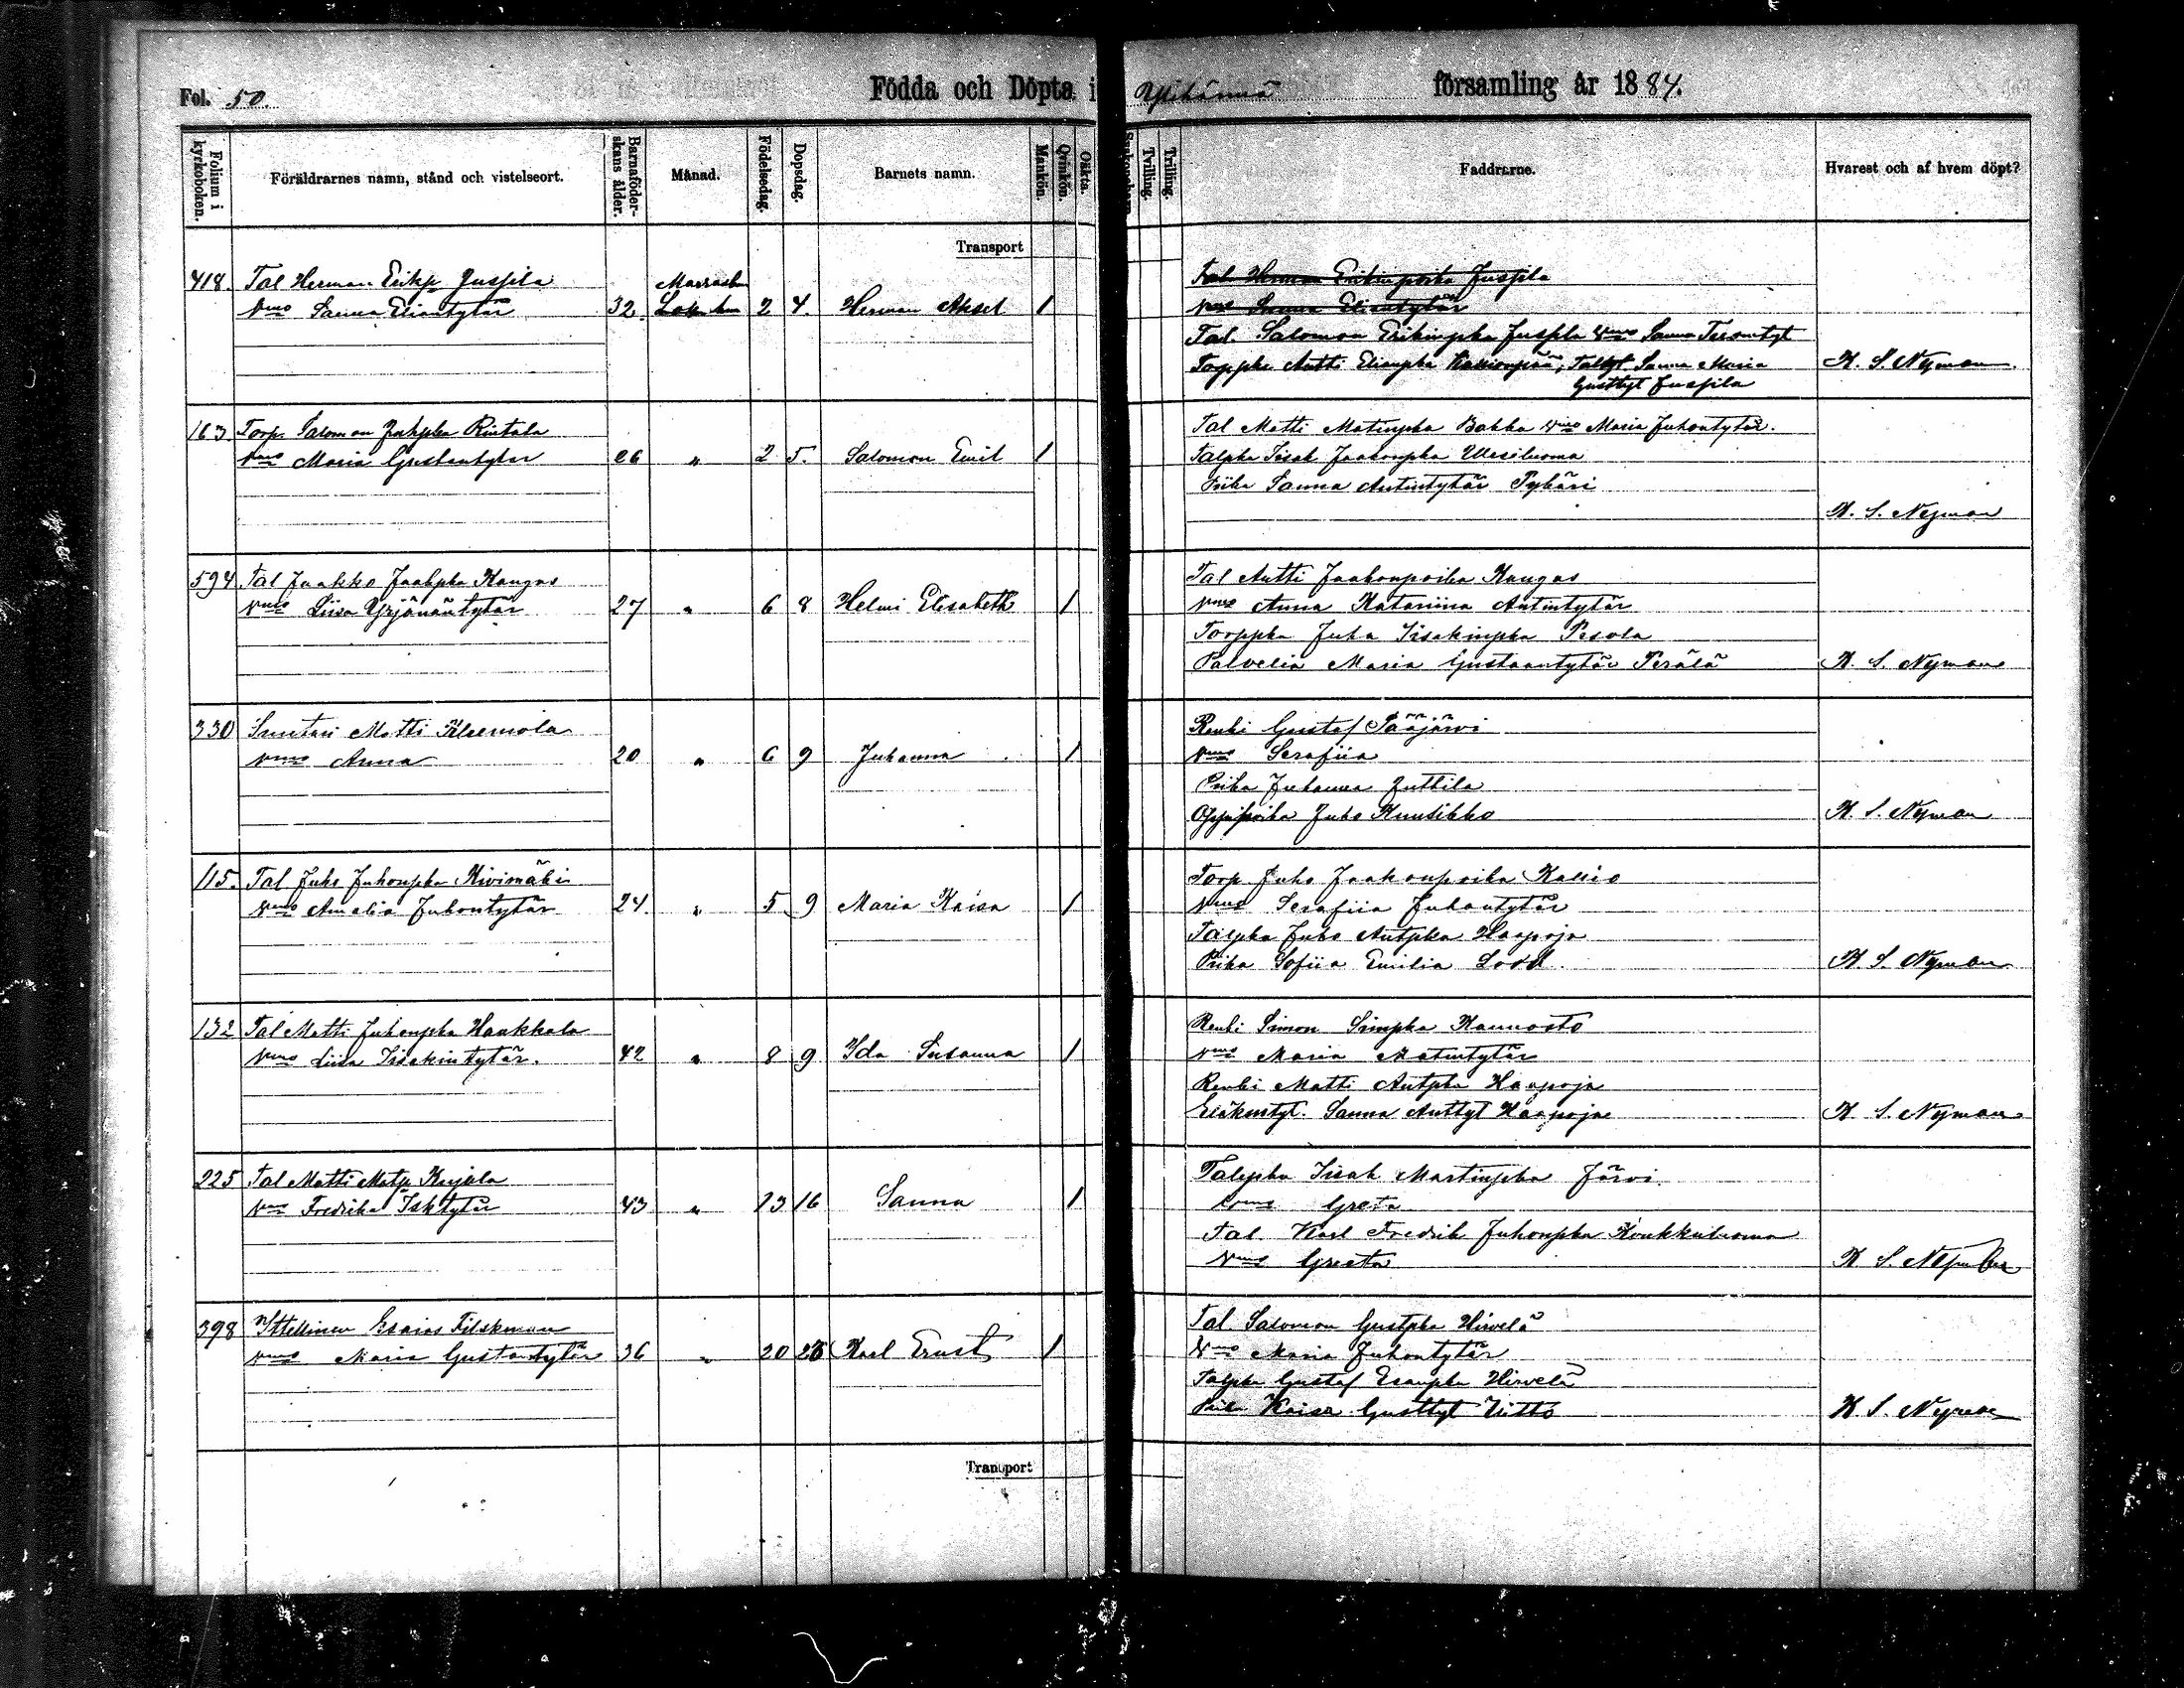 Fol. 50. Födda och Döpta i Ylihärmä församling år 1884.
Folium i kyrkoboken. Föräldrarnes namn, stånd och vistelseort. Barnaföderskans ålder. Månad. Födelsedag. Dopsdag. Barnets namn. Mankön. Qvinkön. Oäkta. Tvilling. Trilling. Faddrarne. Hvarest och af hvem döpt?
Transport
418. Tal Herman Erikp Jussila
Vmo Sanna Eliantytär 32 Marraskuu Lokakuu 2 4. Herman Aksel 1
Tal Herman Erikinpoika Jussila
Vmo Sanna Eliantytär
Tal. Salomon Erikinpka Jussila Vmo Sanna
Torppka Antti Elianpka Kallionpää, Taltyt Sanna Maria
Gusttyt Jussila
K. S. Nyman
163 Torp. Salomon Juhpka Rintala
Vmo Maria Gustantytär 26 " 2 5. Salomon Emil 1
Tal Matti Matinpka Vmo Maria Juhontytär.
Talpka Iisak Jaakonpka
Piika Sanna Antintytär
K. S. Nyman
594 Tal Jaakko Jaakpka Kangas
Vmo Liisa Yrjänäntytär 27 " 6 8 Helmi Elisabeth 1
Tal Antti Jaakonpoika Kangas
Vmo Anna Katariina Antintytär
Torppka Juha Iisakinpka Pesola
Palvelia Maria Gustaantytär Perälä
K. S. Nyman
330 Suutari Matti Kleemola
Vmo Anna 20 " 6 9 Juhanna 1
Renki Gustaf Pääjärvi
Vmo Serafiia
Piika Juhanna Juttila
Oppipoika Juho Kuusikko
K. S. Nyman
115. Tal Juho Juhonpka Kivimäki
Vmo Amalia Juhontytär 24. " 5 9 Maria Kaisa 1
Torp Juho Jaakonpoika Kallio
Vmo Serafiia Juhontytär
Talpka Juho Antpka Haapoja
Piika Sofiia Emilia
K. S. Nyman
132 Tal Matti Juhonpka Haukkala
Vmo Liisa Iisakintytär. 42 " 8 9 Ida Susanna 1
Renki Simon Simpka Kaunosto
Vmo Maria Matintytär
Renki Matti Antpka Haapoja
Sanna Anttyt Haapoja
K. S. Nyman
225 Tal Matti Matp Kujala
Vmo Fredrika Isktytär 43 " 13 16 Sanna 1
Talpka Iisak Martinpka Järvi.
Vmo Greta
Tal. Karl Fredrik Juhonpka
Vmo Greeta
K. S. Nyman
398 Ittellinen Esaias Filskman
Vmo Maria Gustantytär 36 " 20 Karl Ernst 1
Tal. Salomon Gustpka Hirvelä
Vmo Maria Juhontytär
Talpka Gustaf Esanpka Hirvelä
Piika Kaisa Gusttyt
K. S. Nyman
Transport